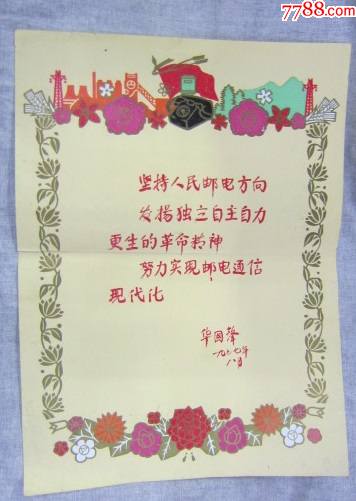 7788.com
坚持人民邮电方向
发扬独立自主自力
更生的革命精神
努力实现邮电通信
现代化
华国锋
一九七七年
八月